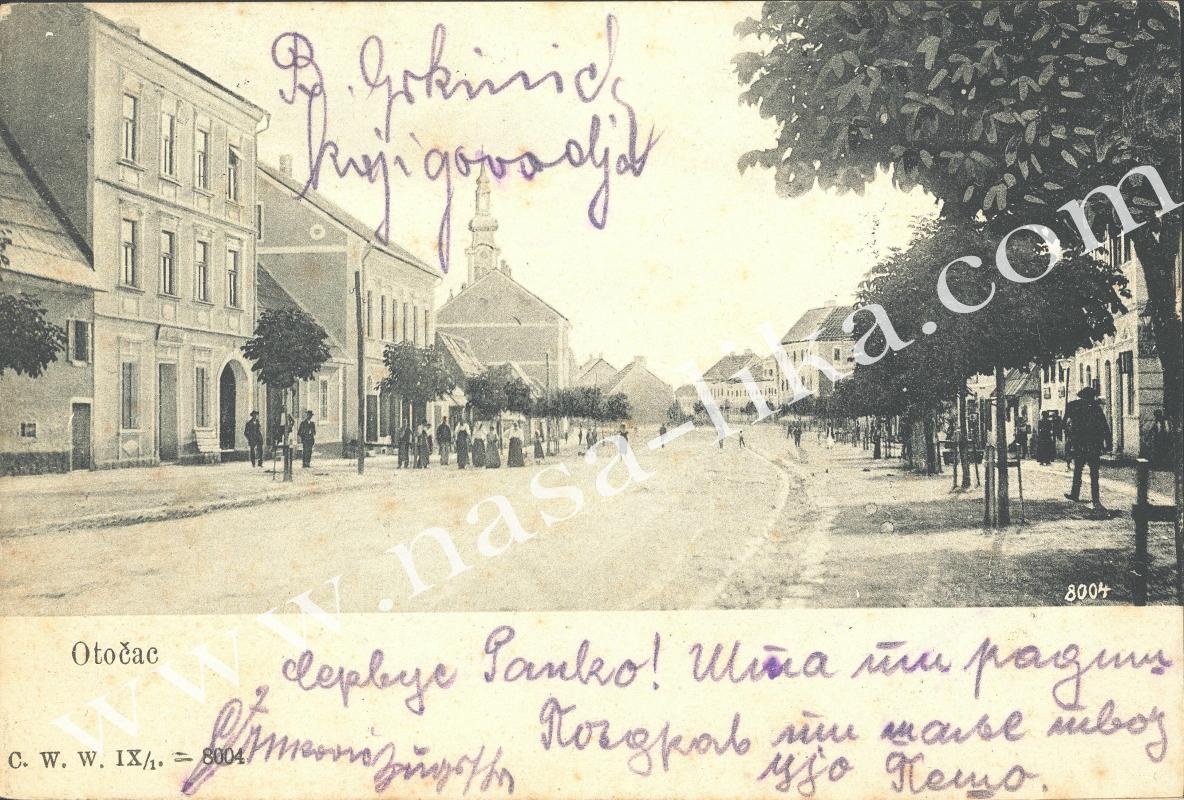 B. Grkinić
knjigovodja
www.nasa-lika.com
8004
Otočac
Сервус Ранко! Шта ти радиш
Поздрав ти шаље твој
ујо Пешо.
C. W. W. IX/1. = 8004